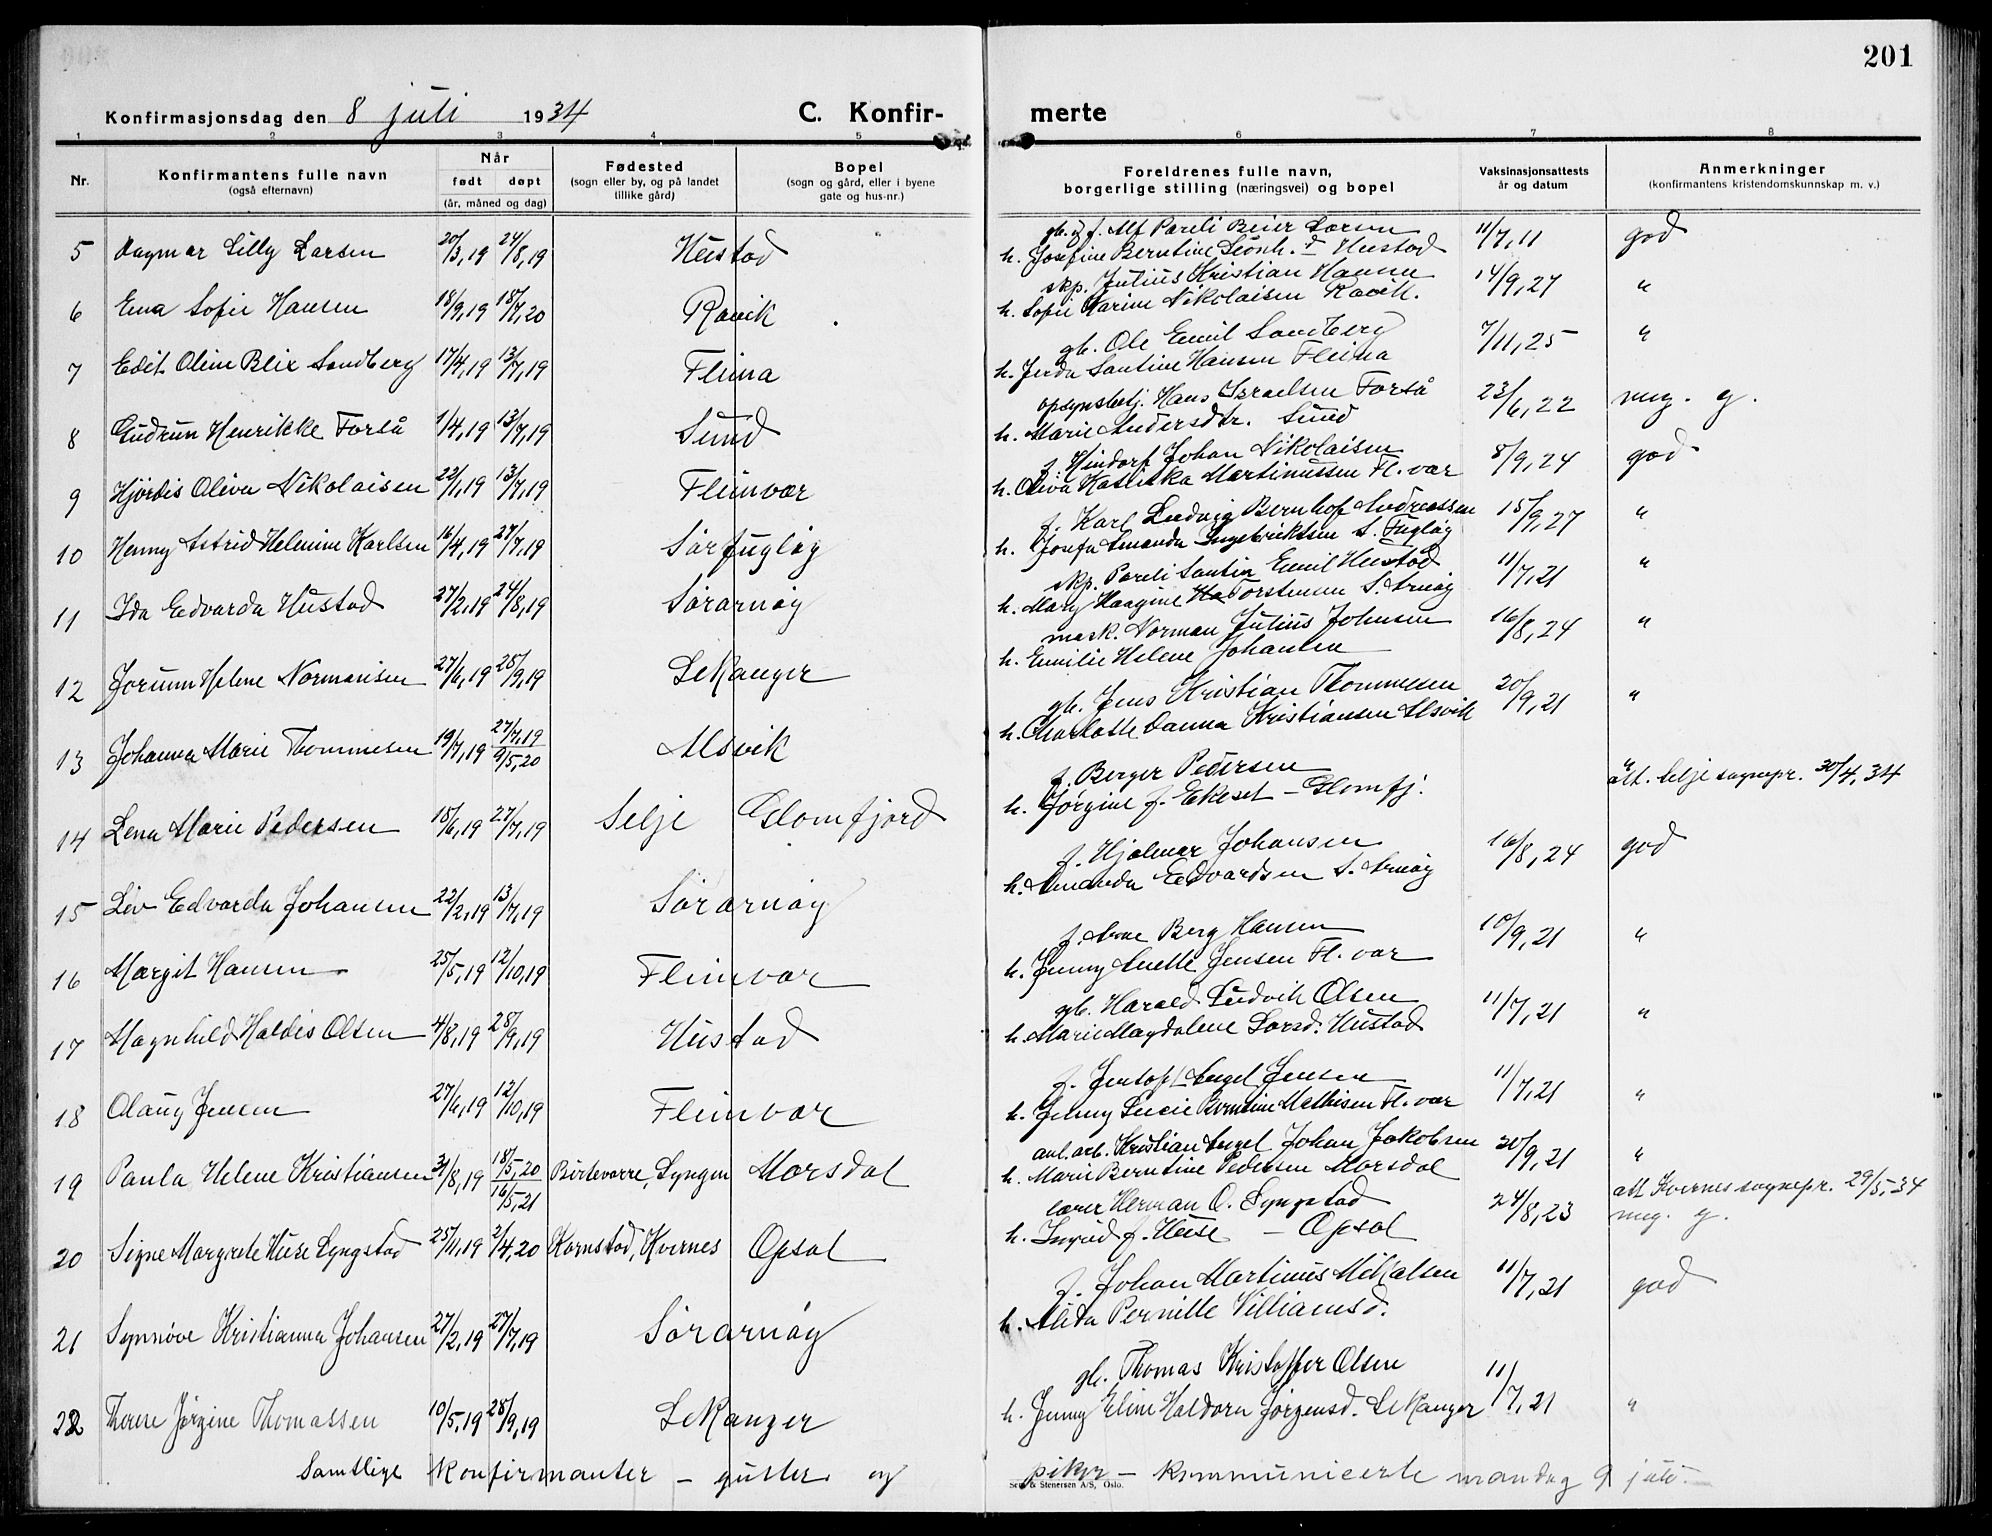 201
Konfirmasjonsdag den 8 juli 1934 C. Konfir- merte
1 2 3 4 5 6 7 8
Nr.
Konfirmantens fulle navn
(også efternavn)
Når
født døpt
(år, måned og dag)
Fødested
(sogn eller by, og på landet
tillike gård)
Bopel
(sogn og gård, eller i byene
gate og hus-nr.)
Foreldrenes fulle navn,
borgerlige stilling (næringsvei) og bopel
Vaksinasjonsattests
år og datum
Anmerkninger
(konfirmantens kristendomskunnskap m. v.)
gb. og f. Alf Pareli Beier Larsen
5 Dagmar Lilly Larsen 20/3,19 24/8,19 Hustad h. Josefine Berntine Leonh. d Hustad 11/7,11 god
skp. Julius Kristian Hansen
6 Ena Sofie Hansen 18/9,19 18/7,20 Ravik h. Sofie Marine Nikolaisen Ravik. 14/9,27 "
gb. Ole Emil Sandberg
7 Edit Oline Blix Sandberg 17/4,19 13/7,19 Fleina h. Jerda Santine Hansen Fleina 7/11,25 "
opsynsbetj. Hans Israelsen Forså
8 Gudrun Henrikke Forså 1/4,19 13/7,19 Sund h. Marie Andersdtr. Sund 23/6,22 meg. g.
f. Hindorf Johan Nikolaisen
9 Hjördis Oliva Nikolaisen 22/1,19 13/7,19 Fleinvær h. Oliva Kasliska Martinussen Fl. vær 8/9,24 god
f. Karl Ludvig Bernhof Andreassen
10 Henny Astrid Helmine Karlsen 16/4,19 27/7,19 Sørfugløy h. Josefa Amanda Ingebriktsen S. Fugløy 15/9,27 "
skp. Pareli Santin Emil Hustad
11 Ida Edvarda Hustad 27/2,19 24/8,19 Sørarnøy h. Mary Haagine Torstensen S. Arnøy 11/7,21 "
mask. Norman Julius Johnsen
12 Jorunn Helene Normansen 27/6,19 28/9,19 Lekanger h. Emilie Helene Johansen 16/8,24 "
gb. Jens Kristian Thommesen
13 Johanna Marie Thommesen 19/7,19 27/7,19 9/5,20 Alsvik h. Charlotte Danna Kristiansen Alsvik 20/9,21 "
f. Berger Pedersen
14 Lena Marie Pedersen 18/6,19 27/7,19 Selje Glomfjord h. Jørgine f. Ekeset – Glomfj. att. Selje sognepr. 30/4,34
f. Hjalmar Johansen
15 Liv Edvarda Johansen 22/2,19 13/7,19 Sørarnøy h. Amanda Edvardsen S. Arnøy 16/8,24 god
f. Arne Berg Hansen
16 Margit Hansen 25/5,19 12/10,19 Fleinvær h. Jenny Anette Jensen Fl. vær 10/9,21 "
gb. Harald Ludvik Olsen
17 Magnhild Haldis Olsen 4/8,19 28/9,19 Hustad h. Marie Magdalene Larsd. Hustad 11/7,21 "
f. Jentoft Angel Jensen
18 Olaug Jensen 27/6,19 12/10,19 Fleinvær h. Jenny Lucie Berntine Mathisen Fl. vær 11/7,21 "
anl. arb. Kristian Angel Johan Jakobsen
19 Paula Helene Kristiansen 31/8,19 18/5,20 16/5,21 Birtevarre, Lyngen Morsdal h. Marie Berntine Pedersen Morsdal 20/9,21 "
lærer Herman O. Lyngstad
20 Signe Margrete Huse Lyngstad 25/11,19 2/4,20 Kornstad, Kvernes Opsal h. Ingrid f. Huse – Opsal 24/8,23 att Kvernes sognepr. 29/5,34 meg. g.
f. Johan Martinus Mikalsen
21 Synnöve Kristianna Johansen 27/2,19 27/7,19 Sørarnøy h. Alida Pernille Villiamsd. 11/7,21 god
gb. Thomas Kristoffer Olsen
22 Therese Jørgine Thomassen 10/5,19 28/9,19 Lekanger h. Jenny Eline Haldora Jørgensd. Lekanger 11/7,21 "
Samtlige konfirmanter – gutter og piker – kommuniserte mandag 9 juli.
& Stenersen A/S, Oslo.